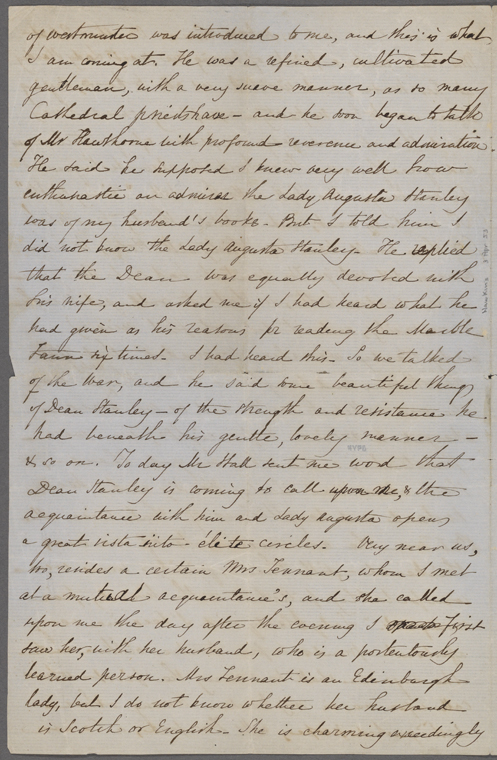 of Westminster was introduced to me, and this is what
I am coming at. He was a refined, cultivated
gentleman, with a very suave manner, as so many
Cathedral priests have – and he soon began to talk
of Mr Hawthorne with profound reverence and admiration
He said he supposed I knew very well how
enthusiastic an admirer the Lady Augusta Stanley
was of my husband's books. But I told him I
did not know the Lady Augusta Stanley. He replied
that the Dean was equally devoted with
his wife, and asked me if I had heard what he
had given as his reasons for reading the Marble
Faun six times. I had heard this. So we talked
of the Dean, and he said some beautiful things
of Dean Stanley – of the strength and resistance he
had beneath his gentle, lovely manner –
& so on. To day Mr Hall sent me word that
Dean Stanley is coming to call upon me, & the
acquaintance with him and Lady Augusta opens
a great vista into élite circles. Very near us,
too, resides a certain Mrs Tennant, whom I met
at a mutual acquaintance's, and she called
upon me the day after the evening I first
saw her, with her husband, who is a portentously
learned person. Mrs Tennant is an Edinburgh
lady, but I do not know whether her husband
is Scotch or English. She is charming exceedingly